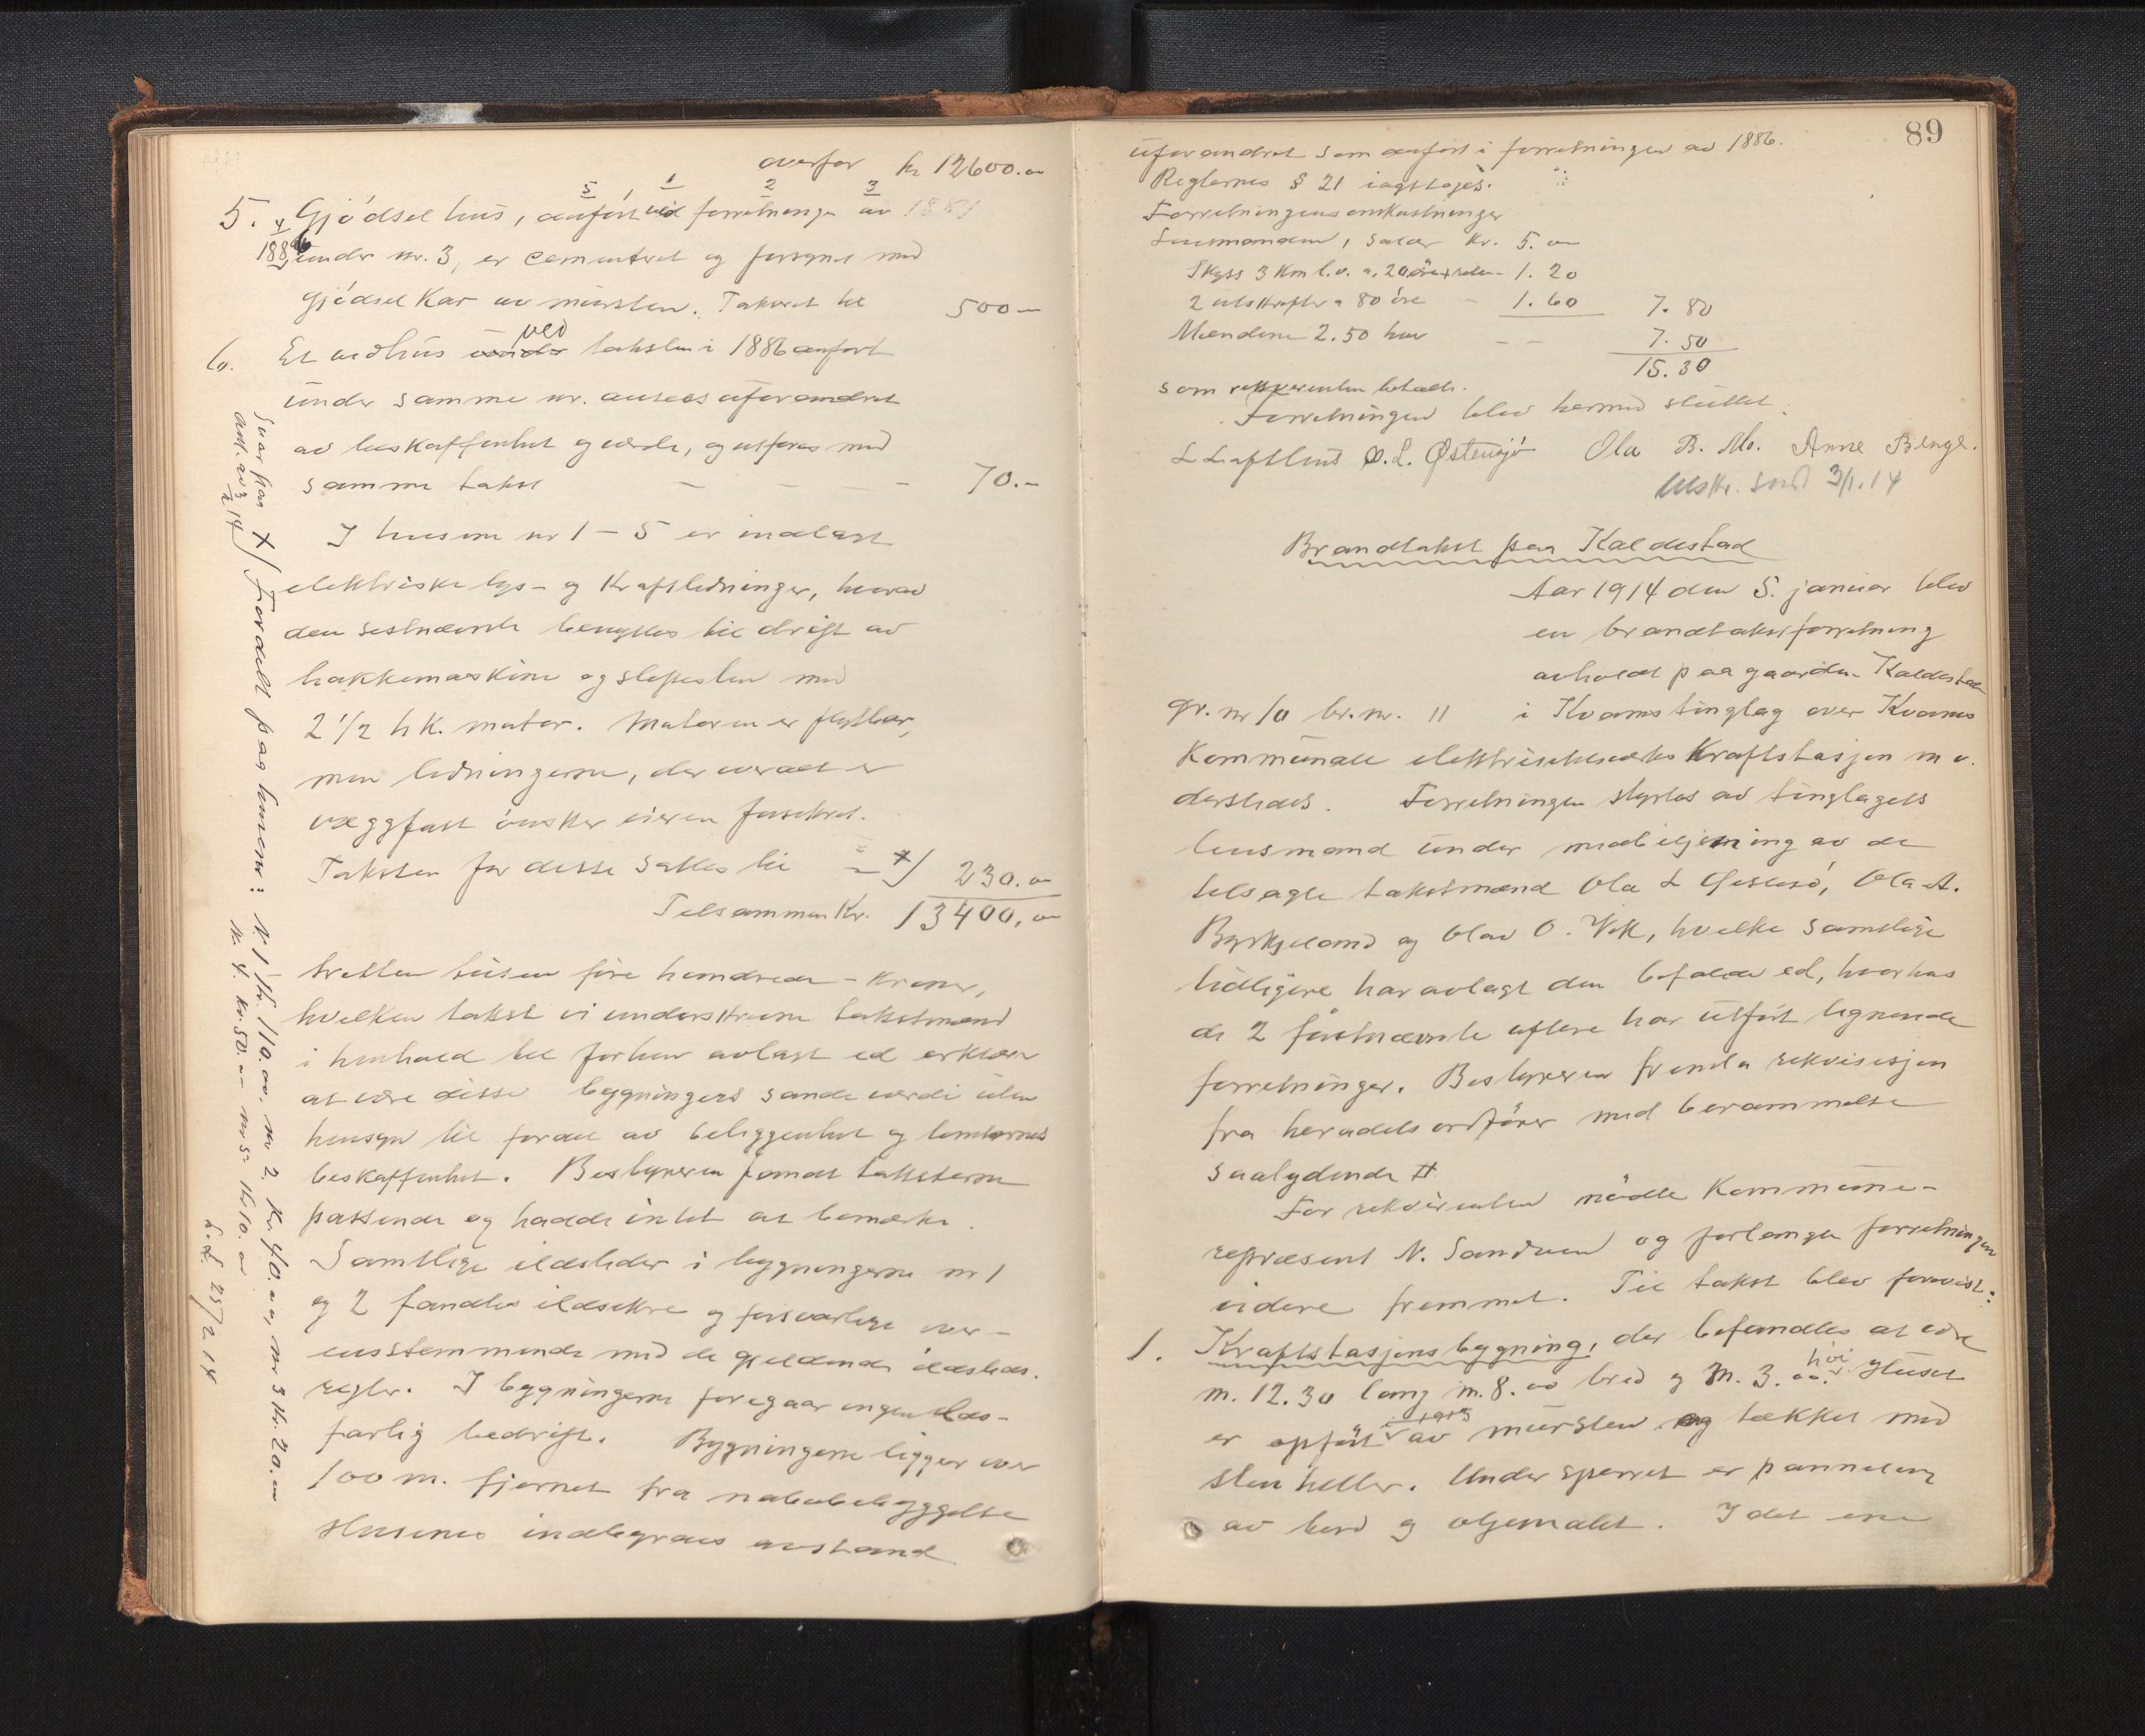 overfør kr 12600.00
5 1 1 2 3
5. Gjødselhus, anført ved forretninge av 1881
4
1886 under nr. 3, er cementeret og forsynet med
gjødselkar av mursten. Takseret til 500 —
6. Et vedhus under ved taksten i 1886 anført
under samme nr. ansees uforandret
av beskaffenhet og værde, og utføres med
samme takst - - - 70.-
I husene nr 1 - 5 er indlagt
elektriske lys- og kraftledninger, hvorav
den sistnævnte benyttes til drift av
hakkemaskine og slipesten med
2 1/2 hk. motor. Motoren er flytbar,
men ledningerne, der overalt er
væggfast ønsker eieren forsikret.
Taksten for disse sættes til = x) 230.00
Tilsammen Kr. 13400,00
tretten tusen fire hundrede - kroner,
hvilken takst vi underskrevne takstmænd
i henhold til forhen avlagt ed erklærer
at være disse bygningers sande værdi uten
hensyn til fordel av beliggenhet og tomternes
beskaffenhet. Bestyreren fandt taksterne
passende og hadde intet at bemærke.
Samtlige ildsteder i bygningerne nr 1
og 2 fandtes ildsikre og forsvarlige over-
ensstemmende med de gjeldende ildsteds-
regler. I bygningerne foregaar ingen ilds-
farlig bedrift. Bygningerne ligger over
100 m. fjernet fra nabobebyggelse
Husenes indbyrdes avstand
x) Fordelt paa husene: Nr 1 kr. 110.00, nr 2, kr. 40.00, nr 3 kr. 20.00
Nr. 4. kr. 50.00 nr 5 kr 10.00
L.L. 25/2 14
89
uforandret som anført i forretningen av 1886.
Reglernes § 21 iagttages.
Forretningens omkostninger
Lensmanden, salær kr. 5.00
Skyss 3 km l.v. a. 20 øre - 1.20
2 utskrifter a 80 øre - 1.60 7.80
Mændene 2.50 hver - - 7.50
15.30
som rekvirenten betalte.
Forretningen blev hermed sluttet.
L Lofthus O. L. Østensjø Ola B. Mo. Arne Berge.
Utskr. send 3/1.14
Brandtakst paa Kaldestad
Aar 1914 den 5. januar blev
en brandtakstforretning
avholdt paa gaarden Kaldestad
gr. nr 10 br. nr. 11 i Kvams tinglag over Kvams
kommunale elektricitetsverks kraftstasjon m v.
dersteds. Forretningen styrtes av tinglagets
lensmand under medbetjening av de
tilsagte takstmænd Ola L , Ola A.
Byrkjeland og Olav O. Vik, hvilke samtlige
tidligere har avlagt den befalede ed, hvorhos
de 2 førstnævnte oftere har utført lignende
forretninger. Bestyreren fremla rekvisisjon
fra heradets ordfører med berammelse
saalydende #
For rekvirenten mødte kommune-
repræsent N. Sandven og forlangte forretningen
videre fremmet. Til takst blev forevist:
1. Kraftstasjonsbygning, der befandtes at være
m. 12.30 lang m. 8.00 bred og M. 3.00 høi. Huset
er opført i 1913 av mursten og tækket med
stenheller. Under sperret er panneling
av bord og oljemalet. I det ene